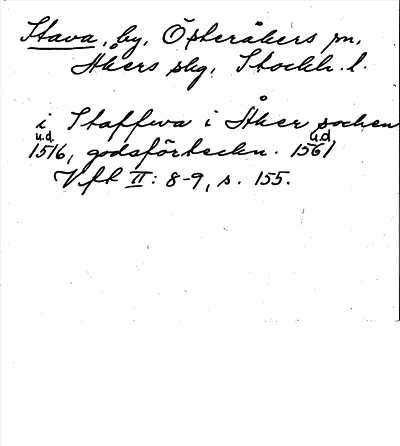 Stava, by, Österåkers sn,
Åkers skg, Stockh. l.
i Staffwa i Åker sochen
u.d. u.d.
1516, godsförteckn. 1561
Vft II: 8-9, s. 155.